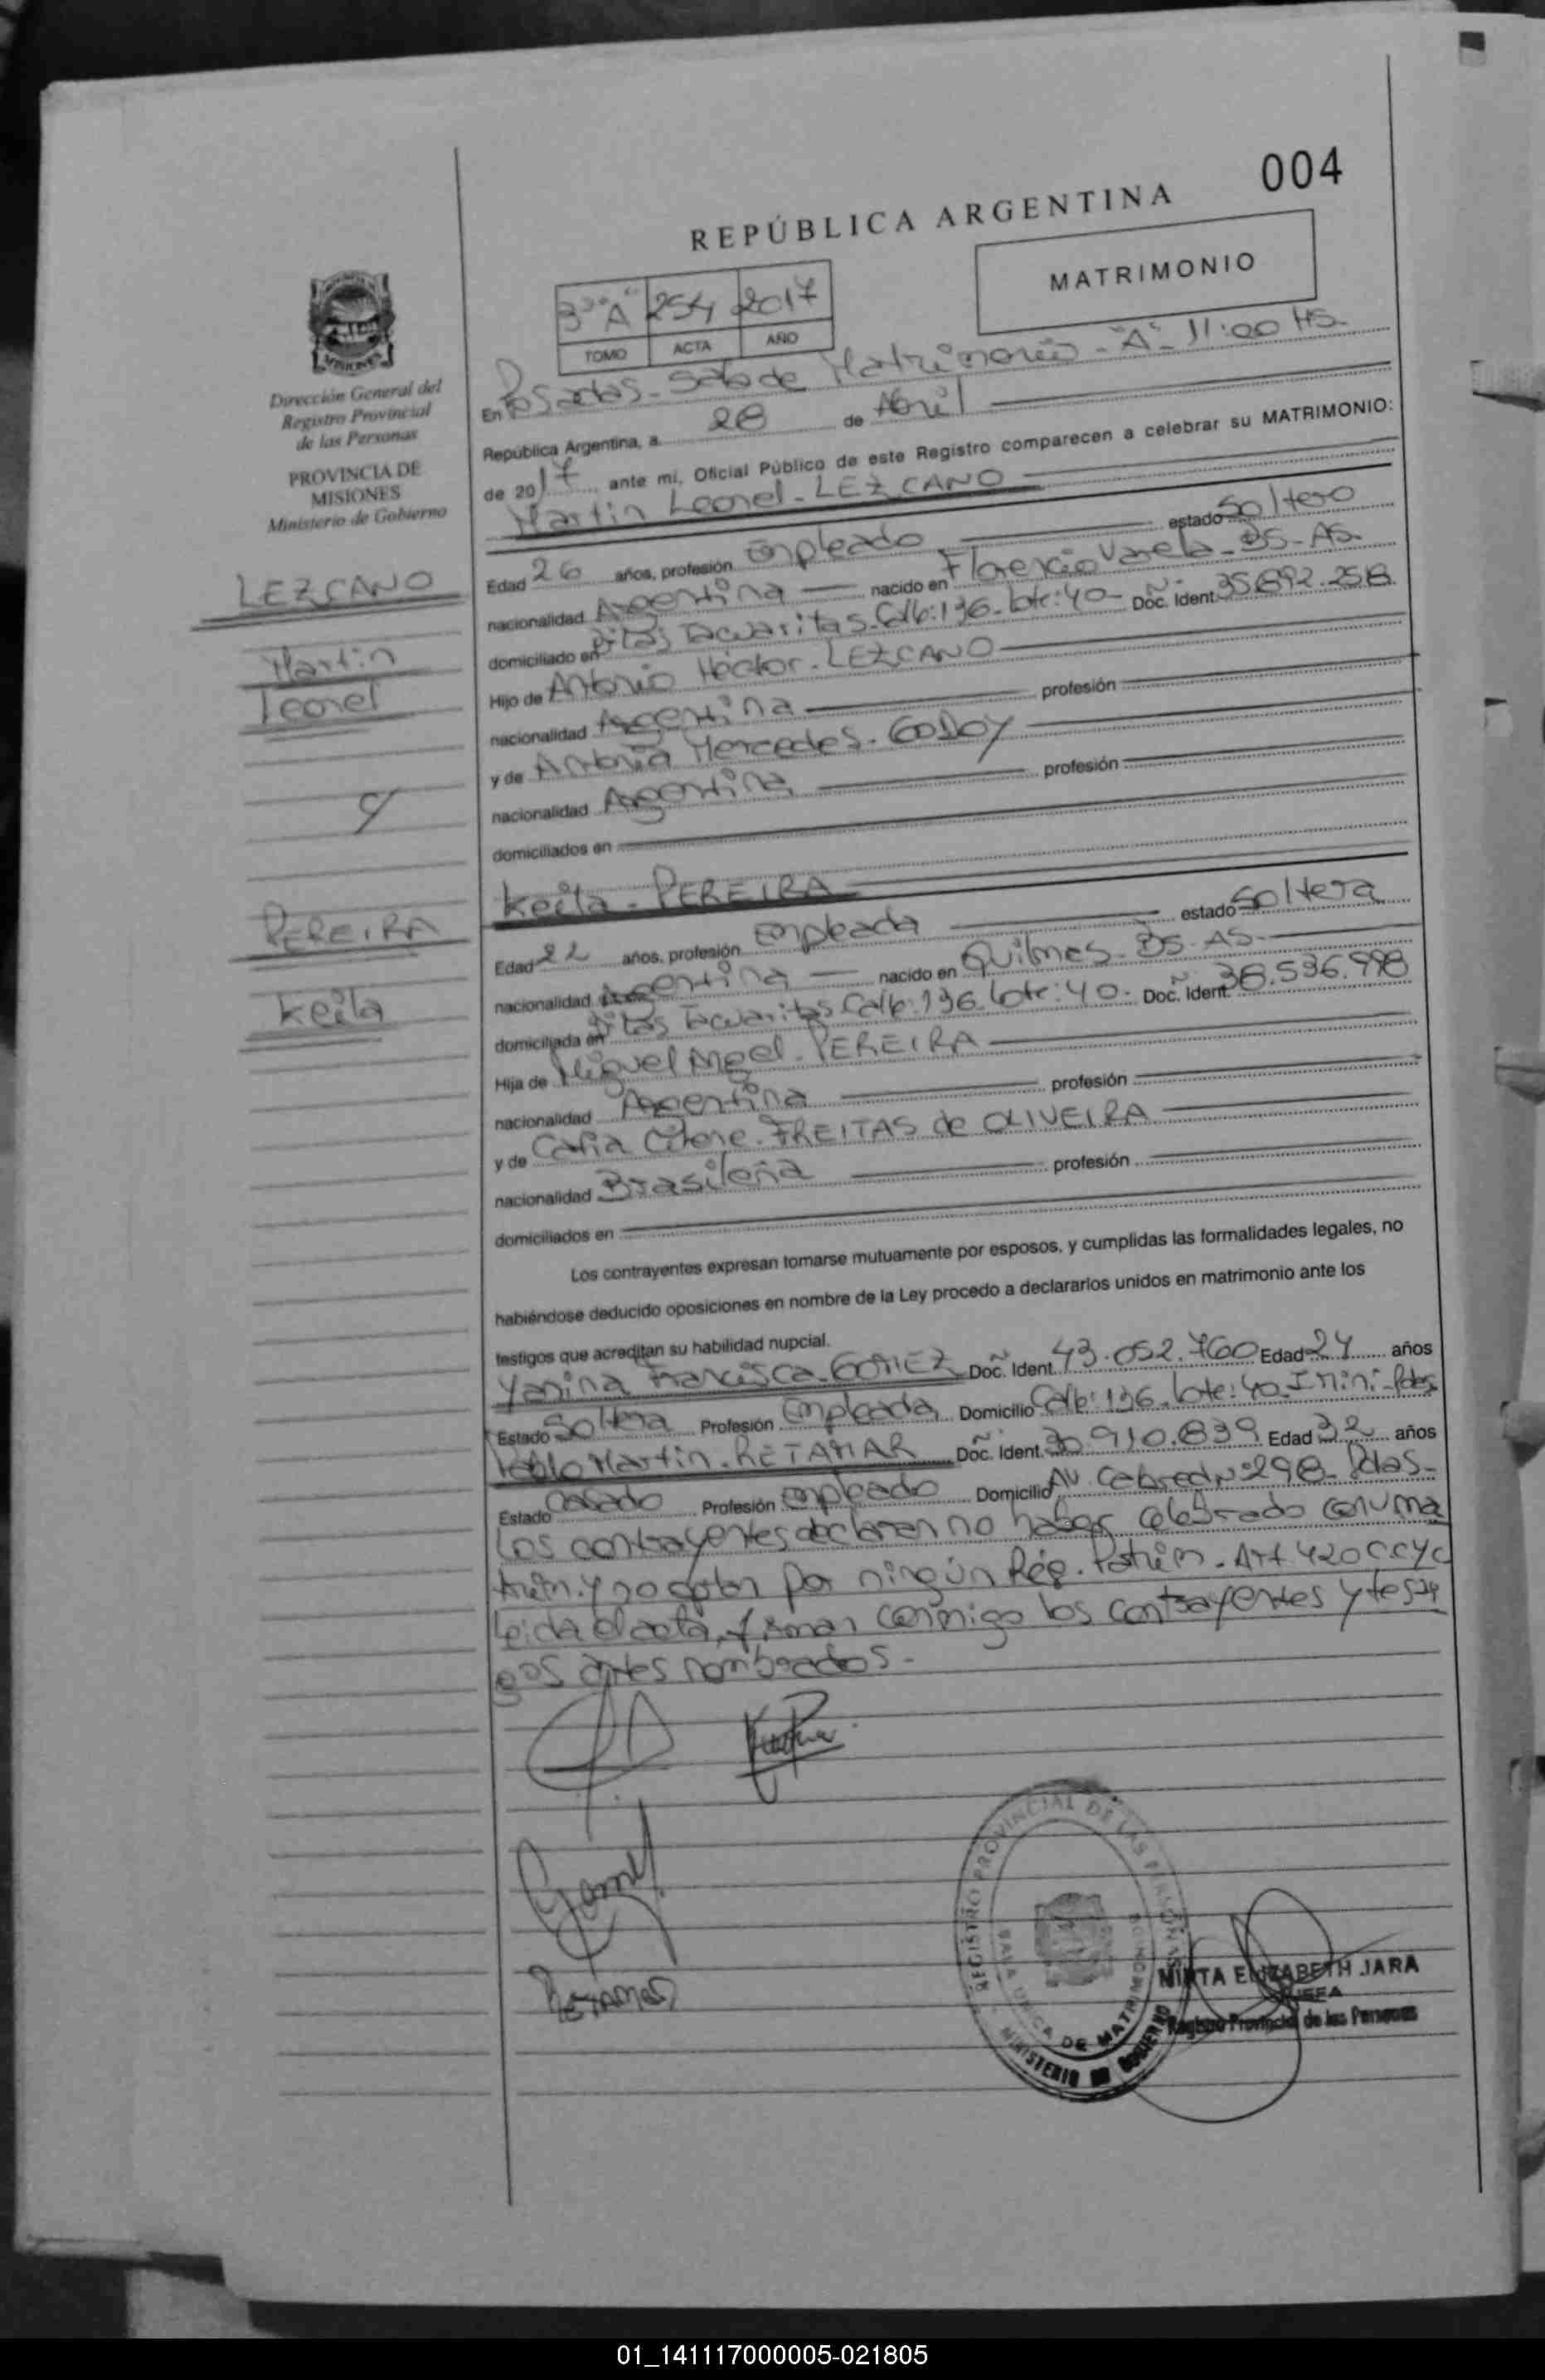 004
REPÚBLICA ARGENTINA
MATRIMONIO
3º "A" 254 2017
TOMO ACTA AÑO
Dirección General del
Registro Provincial
de las Personas
PROVINCIA DE
MISIONES
Ministerio de Gobierno
LEZCANO
Martin
Leonel
y
PEREIRA
Keila
En Posadas - Sala de Matrimonio - "A" - 11:00 HS -
República Argentina, a 28 de Abril
de 2017 ante mi, Oficial Público de este Registro comparecen a celebrar su MATRIMONIO:
Martin Leonel - LEZCANO
Edad 26 años, profesión Empleado estado Soltero
nacionalidad Argentina nacido en Florencio Varela - BS - AS -
domiciliado en Tacuaritas - Calle: 196 - lote: 40 - Doc. Ident. 35.892.258
Hijo de Antonio Héctor - LEZCANO
nacionalidad Argentina profesión
y de Antonia Mercedes - GODOY
nacionalidad Argentina profesión
domiciliados en
Keila - PEREIRA
Edad 22 años, profesión Empleada estado Soltera
nacionalidad Argentina nacido en Quilmes - BS - AS -
domiciliada en Tacuaritas Calle: 196 lote: 40 - Doc. Ident. 38.536.998
Hija de Miguel Angel - PEREIRA
nacionalidad Argentina profesión
y de Catia FREITAS de OLIVEIRA
nacionalidad Brasileña profesión
domiciliados en
Los contrayentes expresan tomarse mutuamente por esposos, y cumplidas las formalidades legales, no
habiéndose deducido oposiciones en nombre de la Ley procedo a declararlos unidos en matrimonio ante los
testigos que acreditan su habilidad nupcial.
Yanina Francisca - GOMEZ Doc. Ident. 43.052.760 Edad 24 años
Estado Soltera Profesión Empleada Domicilio Calle: 196 - lote: 40 - Itini - Pdas
Pablo Martin - RETAMAR Doc. Ident. 30.910.839 Edad 32 años
Estado Casado Profesión Empleado Domicilio Av. Cabred Nº 298 - Pdas -
Los contrayentes declaran no haber celebrado conv. ma
trim. y no optan por ningún Rég. Patrim. - Art 420 CCyC
Leida el acta, firman conmigo los contrayentes y testi
gos antes nombrados -
REGISTRO PROVINCIAL DE LAS PERSONAS
SALA UNICA DE MATRIMONIO
MINISTERIO DE GOBIERNO
MIRTA ELIZABETH JARA
JEFA
Registro Provincial de las Personas
01_141117000005-021805